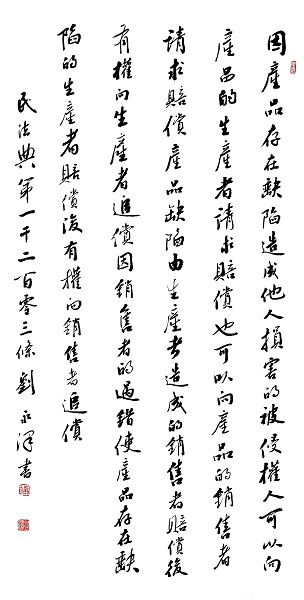 因產品存在缺陷造成他人損害的被侵權人可以向
產品的生產者請求賠償也可以向產品的銷售者
請求賠償產品缺陷由生產者造成的銷售者賠償後
有權向生產者追償因銷售者的過錯使產品存在缺
陷的生產者賠償後有權向銷售者追償
民法典第一千二百零三條劉永澤書